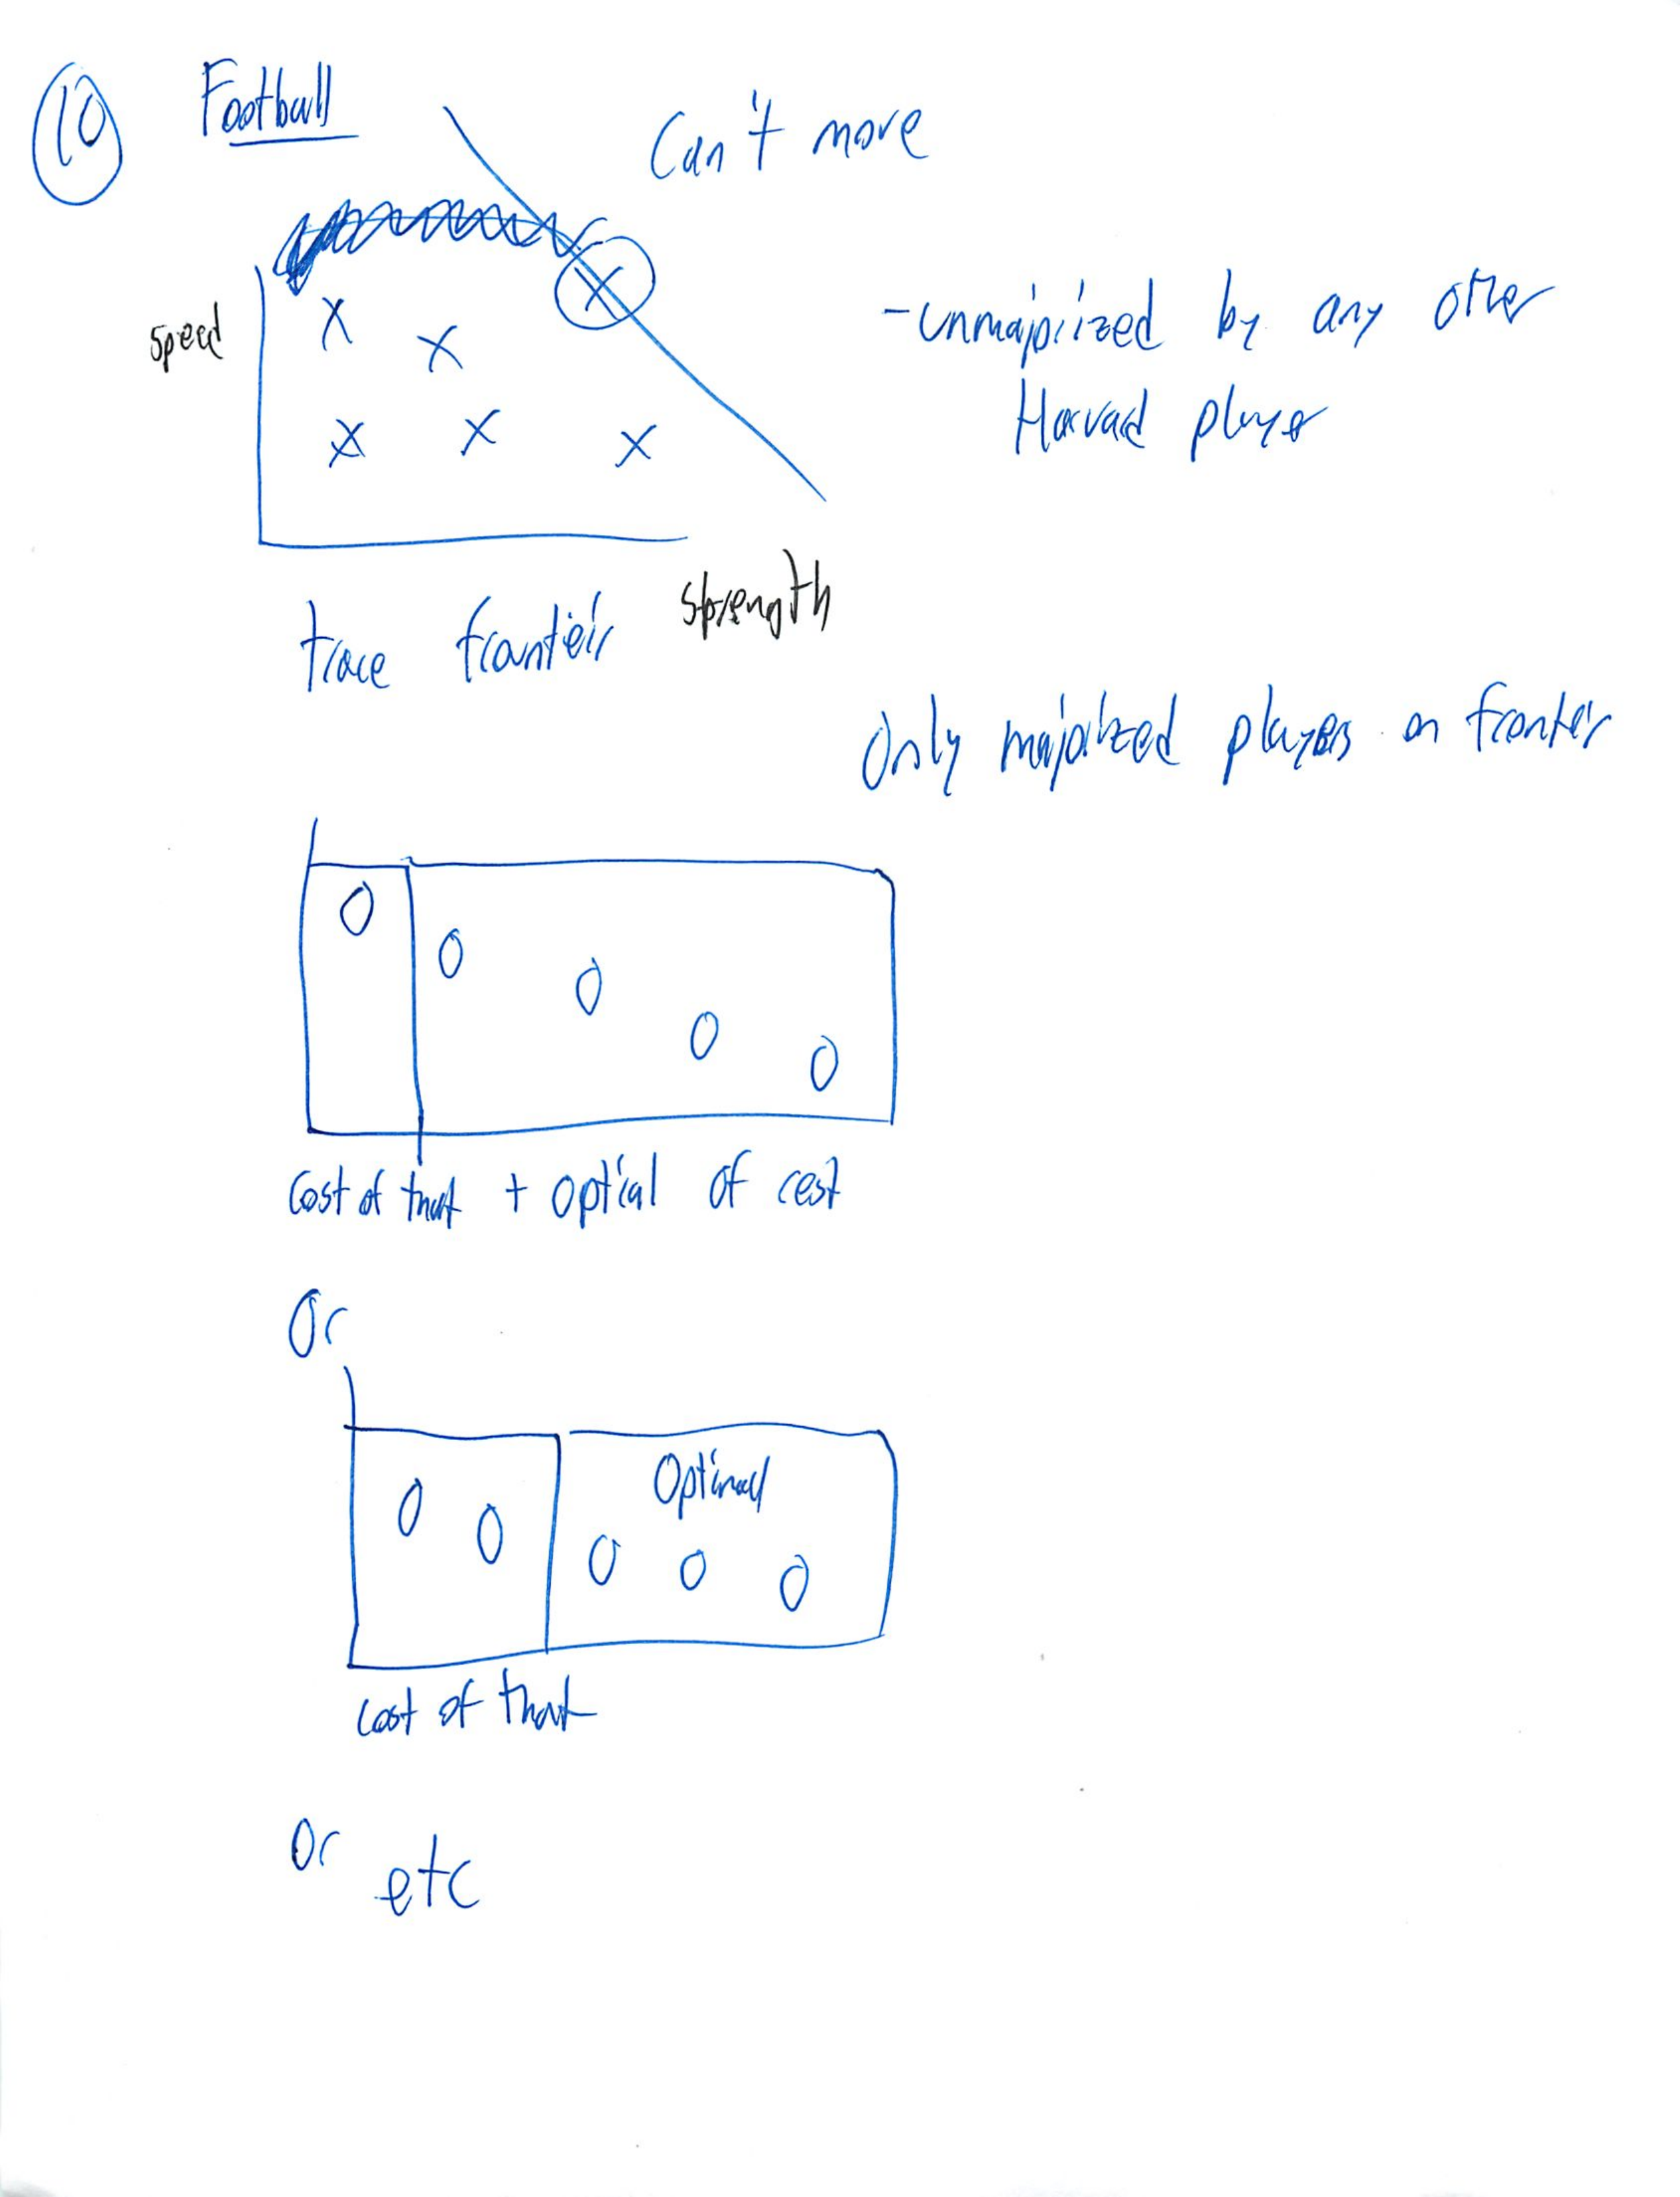 10 Football
Can't move
speed
X
X X
X X X
-unmajorized by any other
Harvard player
strength
trace frontier
Only majorized players on frontier
O O O O O
Cost of that + optial of rest
Or
Optimal
O O O O O
cost of that
Or etc